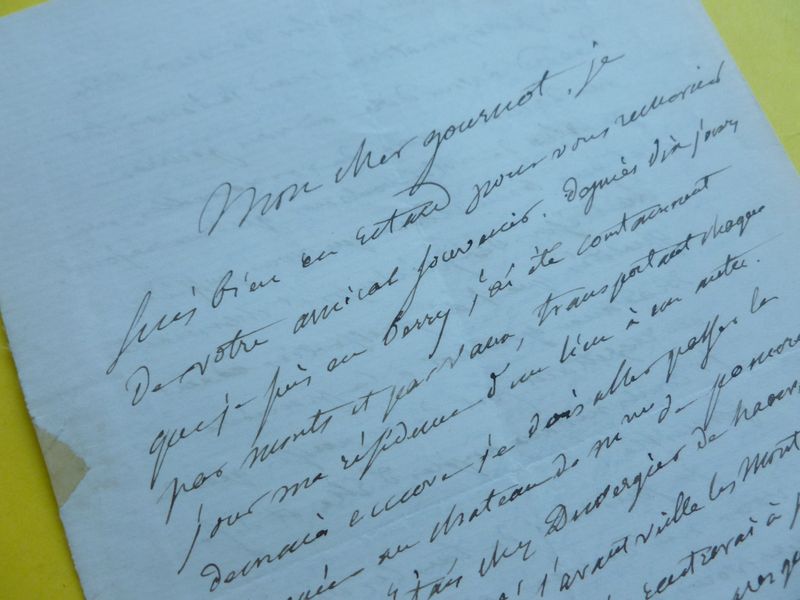 Mon cher gournot, je
suis bien en retard pour vous remercier
de votre amical souvenir. depuis dix jours
que je suis en berry, j'ai été constamment
par monts et par vaux, transportant chaque
jour ma résidence d'un lieu à un autre.
demain encore je dois aller passer la
au chateau de mme de
étais chez Duvergier de haura
j'avant ville les Mont
rentrerai à p